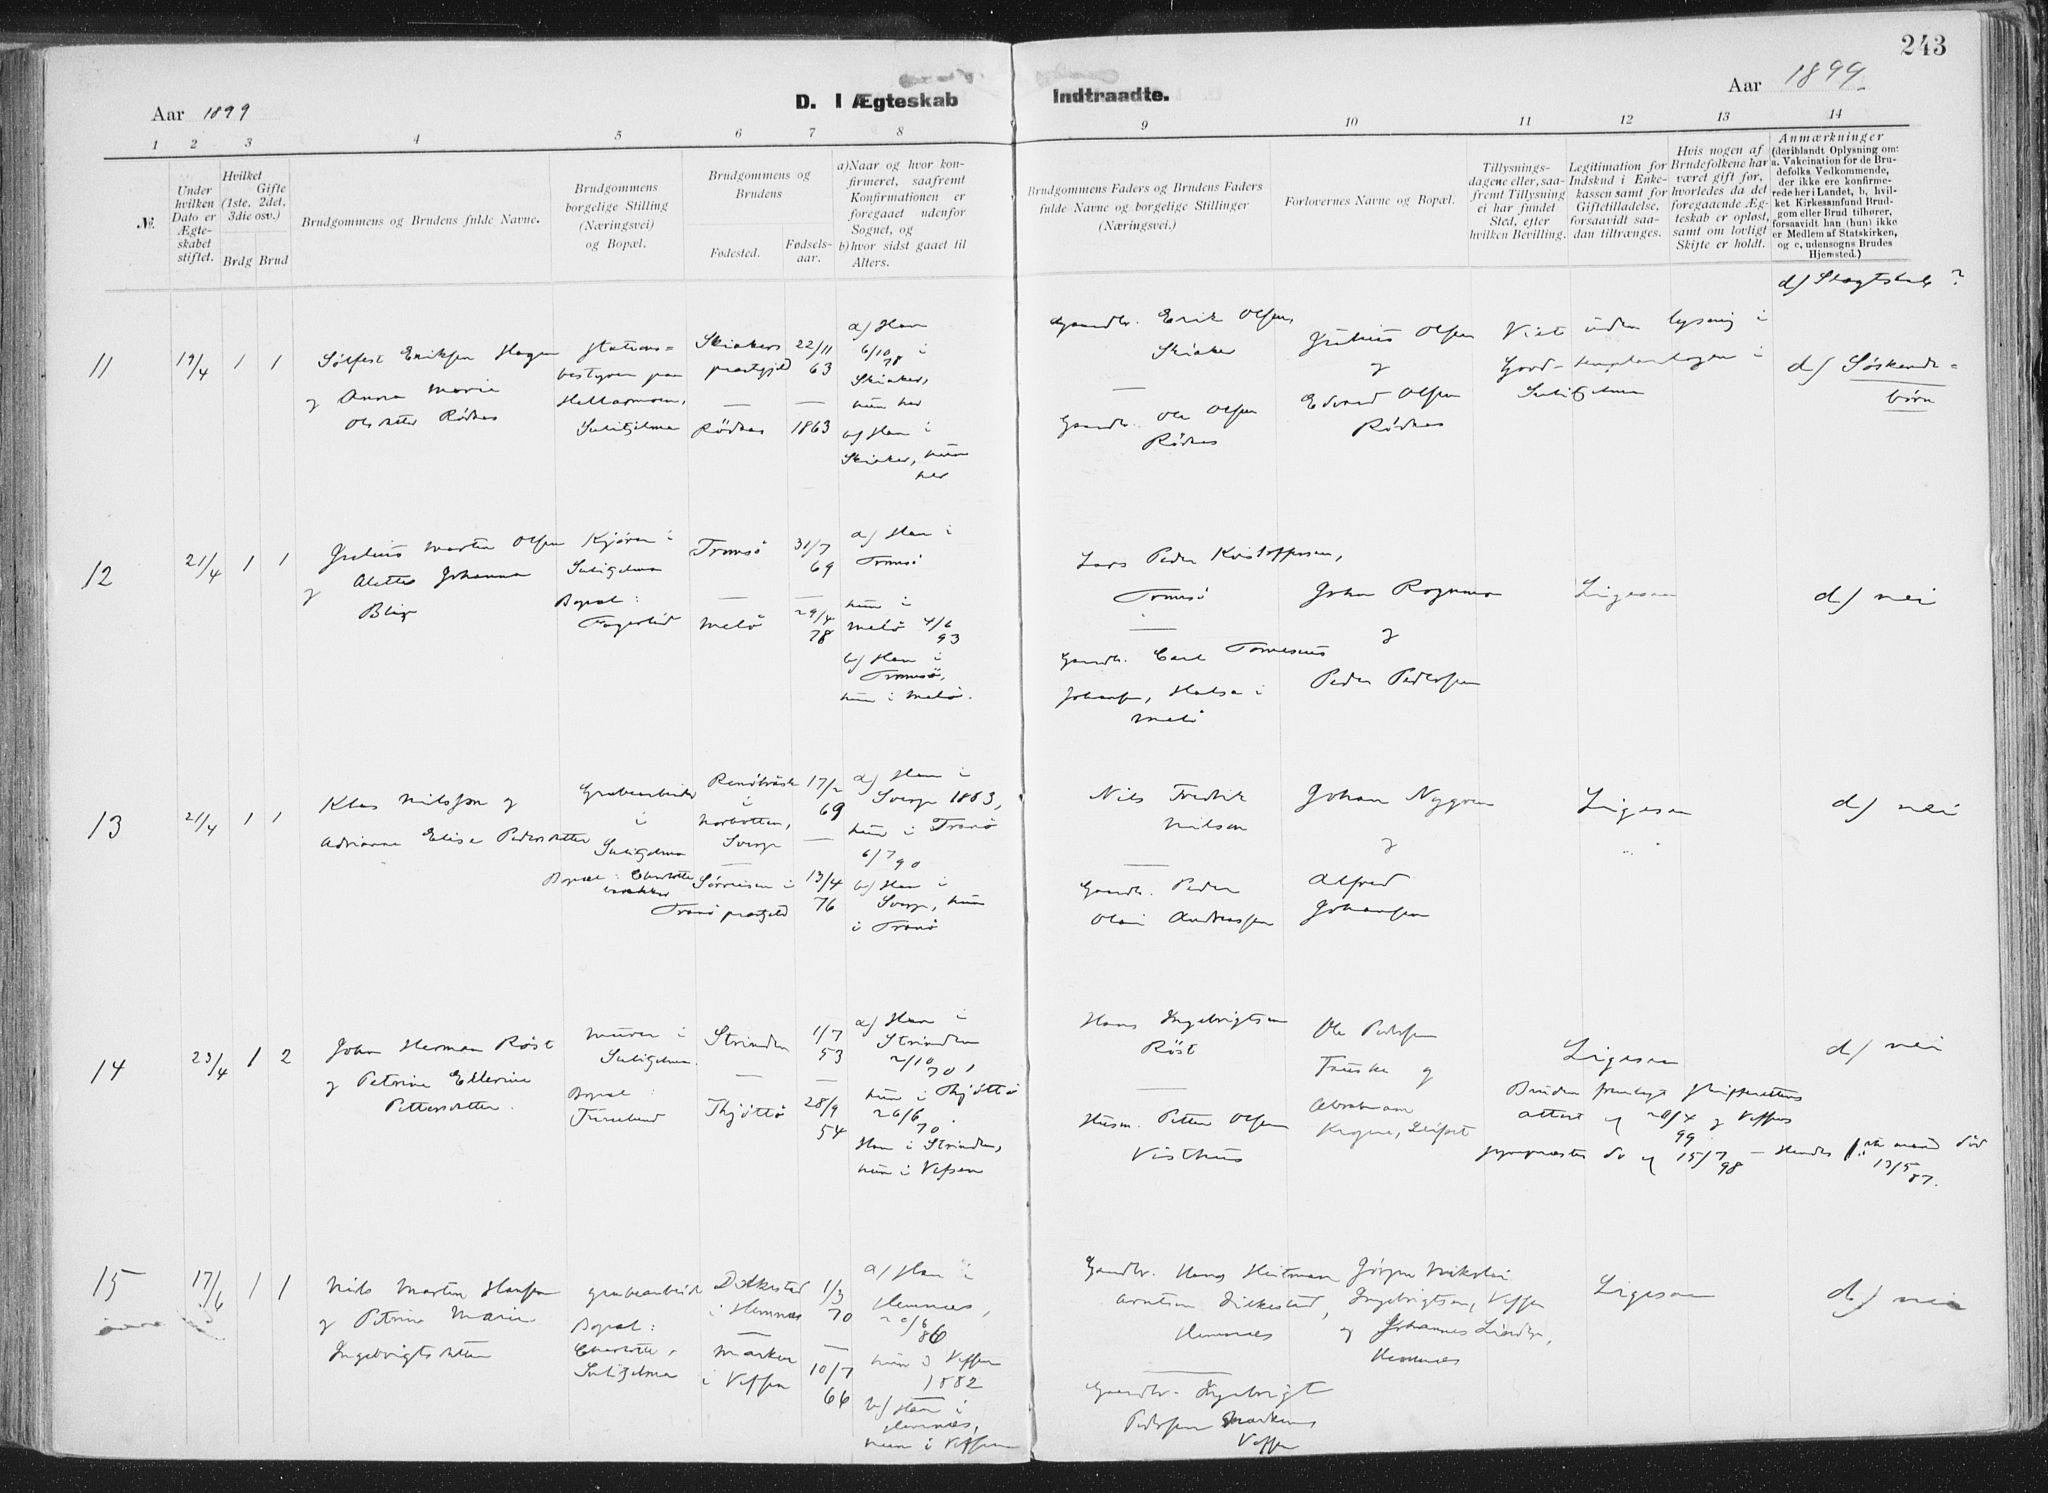 243
Aar 1899
D. I Ægteskab Indtraadte.
Aar 1899
1 2 3 4 5 6 7 8 9 10 11 12 13 14
№.
Under
hvilken
Dato er
Ægte-
skabet
stiftet.
Hvilket
Gifte
(1ste, 2det,
3die osv.)
Brdg Brud
Brudgommens og Brudens fulde Navne.
Brudgommens
borgelige Stilling
(Næringsvei)
og Bopæl.
Brudgommens og
Brudens
Fødested.
Fødsels-
aar.
a) Naar og hvor kon-
firmeret, saafremt
Konfirmationen er
foregaaet udenfor
Sognet, og
b) hvor sidst gaaet til
Alters.
Brudgommens Faders og Brudens Faders
fulde Navne og borgelige Stillinger
(Næringsvei.)
Forlovernes Navne og Bopæl.
Tillysnings-
dagene eller, saa-
fremt Tillysning
ei har fundet
Sted, efter
hvilken Bevilling.
Legitimation for
Indskud i Enke-
kassen samt for
Giftetilladelse,
forsaavidt saa-
dan tiltrænges.
Hvis nogen af
Brudefolkene har
været gift før,
hvorledes da det
foregaaende Æg-
teskab er opløst,
samt om lovligt
Skifte er holdt.
Anmærkninger
(deriblandt Oplysning om:
a. Vakcination for de Bru-
defolks Vedkommende,
der ikke ere konfirme-
rede her i Landet, b, hvil-
ket Kirkesamfund Brud-
gom eller Brud tilhører,
forsaavidt han (hun) ikke
er Medlem af Statskirken,
og c, udensogns Brudes
Hjemsted.)
d) Slægtskab ?
11
19/4
1 1
Eriksen Hagen
og Anna Marie
Olsdatter Rödnes
Stations=
bestyrer paa
Sulitjelma
Skiakers
præstgjeld
—
Rödnes
22/11
63
—
1863
a) Han
6/10 78 i
Skiaker,
hun her
b) Han i
Skiaker, hun
her
Gaardbr. Erik Olsen,
Skiaker
—
Gaardbr. Ole Olsen
Rödnes
Julius Olsen
og
Edvard Olsen
Rödnes
Viet uden lysning i
Good-templarlogen i
Sulitjelma
d) Söskende=
börn
12
21/4
1 1
Julius Martin Olsen
og Alette Johanna
Blix
Kjører i
Sulitjelma
Bopæl:
Fagerlid
Tromsö
—
Melö
31/7
69
—
29/4
78
a) Han i
Tromsö
hun i
Melö 4/6
93
b) Han i
Tromsö,
hun i Melö.
Lars Peder Kristoffersen,
Tromsö
—
Gaardb. Carl
Johansen, Halsa i
Melö
Johan Rognmo
og
Peder Pedersen
Ligesaa
d) nei
13
21/4
1 1
Klas Nilsson og
Adrianne Elise Pedersdatter
Grubearbeider
i
Sulitjelma
Bopæl: Charlotte
i
Norbotten,
Sverge
—
Sörreisen i
Tranö præstgjeld
17/2
69
—
13/4
76
a) Han i
Sverge 1883,
hun i Tranö
6/7 90
b) Han i
Sverge, hun
i Tranö
Nils Fredrik
Nilson
—
Gaardb. Peder
Olai Andreassen
Johan Nygren
og
Alfred
Johansen
Ligesaa
d) nei
14
23/4
1 2
Johan Herman Röst
og Petrine Ellerine
Pettersdatter.
Murer i
Sulitjelma.
Bopæl:
Furulund
Strinden
—
Thjöttö
1/7
53
—
28/9
54
a) Han i
Strinden
2/10 70,
hun i Thjöttö
26/6 70.
Han i Strinden,
hun i Vefsen
Hans Ingebrigtsen
Röst
—
Husm. Petter Olsen
Visthus
Ole Pedersen
Fauske og
Abraham
Ligesaa
Bruden fremlagt skifterettens
attest af 20/4 99 og Vefsens
do af 15/7 98 – Hendes mand död
13/5 87.
d) nei
15
17/6
1 1
Nils Martin Hansen
og Petrine Marie
Ingebrigtsdatter
Grubearbeider
Bopæl:
Charlotte,
Sulitjelma
i Hemnæs
—
Marken
i Vefsen
1/3
70
—
10/7
66
a) Han i
Hemnæs,
20/6 86
hun i Vefsen
1882
b) Han i
Hemnæs,
hun i Vefsen
Gaardbr. Hans Heitman
Arntsen,
Hemnæs
—
Gaardbr. Ingebrigt
Pedersen Marken
Vefsen
Jörgen Nikolai
Ingebrigtsen, Vefsen
og Johannes
Hemnæs
Ligesaa
d) nei